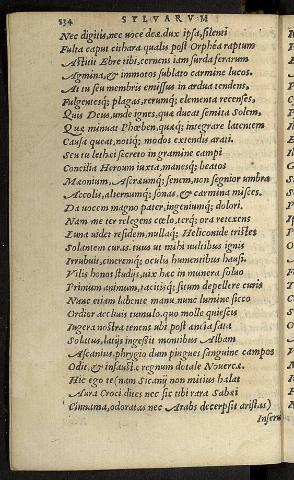 234 SYLVARVM
Nec digitis, nec uoce dea. dux ipsa, silenti
Fulta caput cithara qualis post Orphéa raptum
Astitit Ebre tibi, cernens iam surda ferarum
Agmina, & immotos sublato carmine lucos.
At tu seu membris emissus in ardua tendens,
Fulgentesq; plagas, rerumq; elementa recenses,
Quis Deus, unde ignes, quæ ducat semita Solem,
Quæ minuat Phœben, quæq; integrare latentem
Causa queat, notiq; modos extendis arati.
Seu tu lethei secreto in gramine campi
Concilia Heroum iuxta, manesq; beatos
Mæonium, Ascræumq; senem, non segnior umbra
Accolis, alternumq; sonas, & carmina misces.
Da uocem magno pater, ingeniumq; dolori.
Nam me ter relegens cœlo, terq; ora retexens
Luna uidet residem, nullaq; Heliconide tristes
Solantem curas. tuus ut mihi uultibus ignis
Irrubuit, cineremq; oculis humentibus hausi.
Vilis honos studijs, uix hæc in munera soluo
Primum animum, tacitisq; situm depellere curis
Nunc etiam labente manu, nunc lumine sicco
Ordior accluuis tumulo, quo molle quiescis
Iugera nostra tenens ubi post ancia fata
Solatus, latijs ingessit montibus Albam
Ascanius, phrygio dum pingues sanguine campos
Odit, & infausta regnum dotale Nouercæ.
Hic ego te (nam Sicanij non mitius halat
Aura Croci. dues nec sic tibi rara Sabæi
Cinnama, odoratas nec Arabs decerpsit aristas)
Inserui